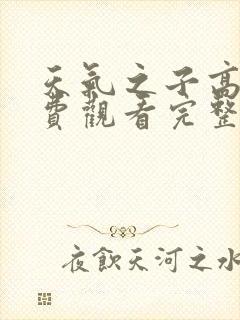 天氣之子高
費觀看完整
夜飲天河之水